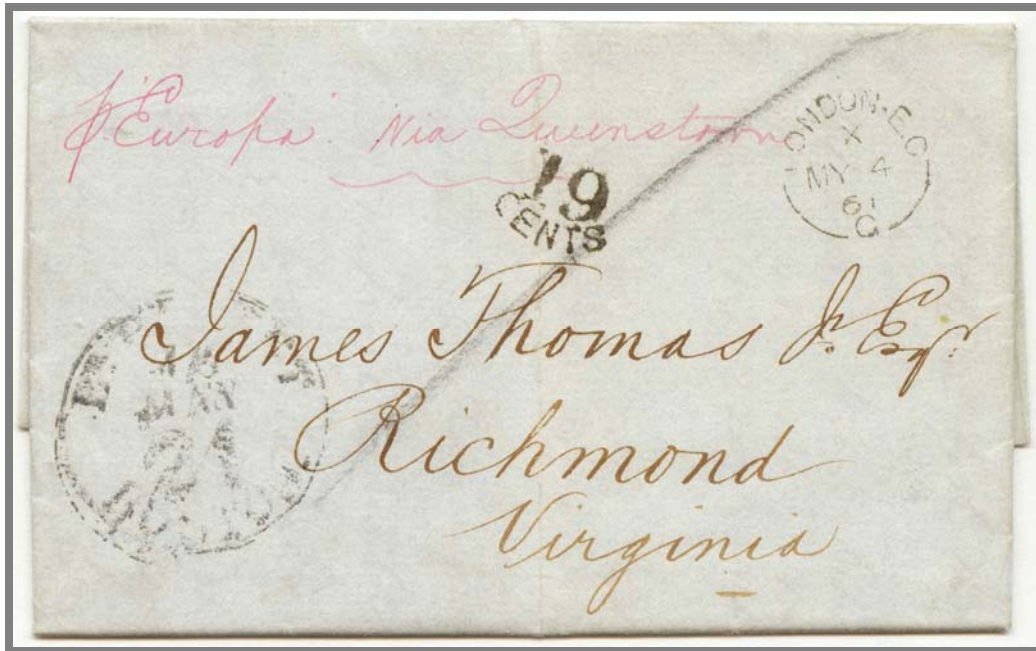 pr Europa. Via Queenstown
LONDON-E.C
X
MY 4
61
C
19
CENTS
James Thomas Jr. Esqr.
Richmond
Virginia
MAY
21
BOSTON